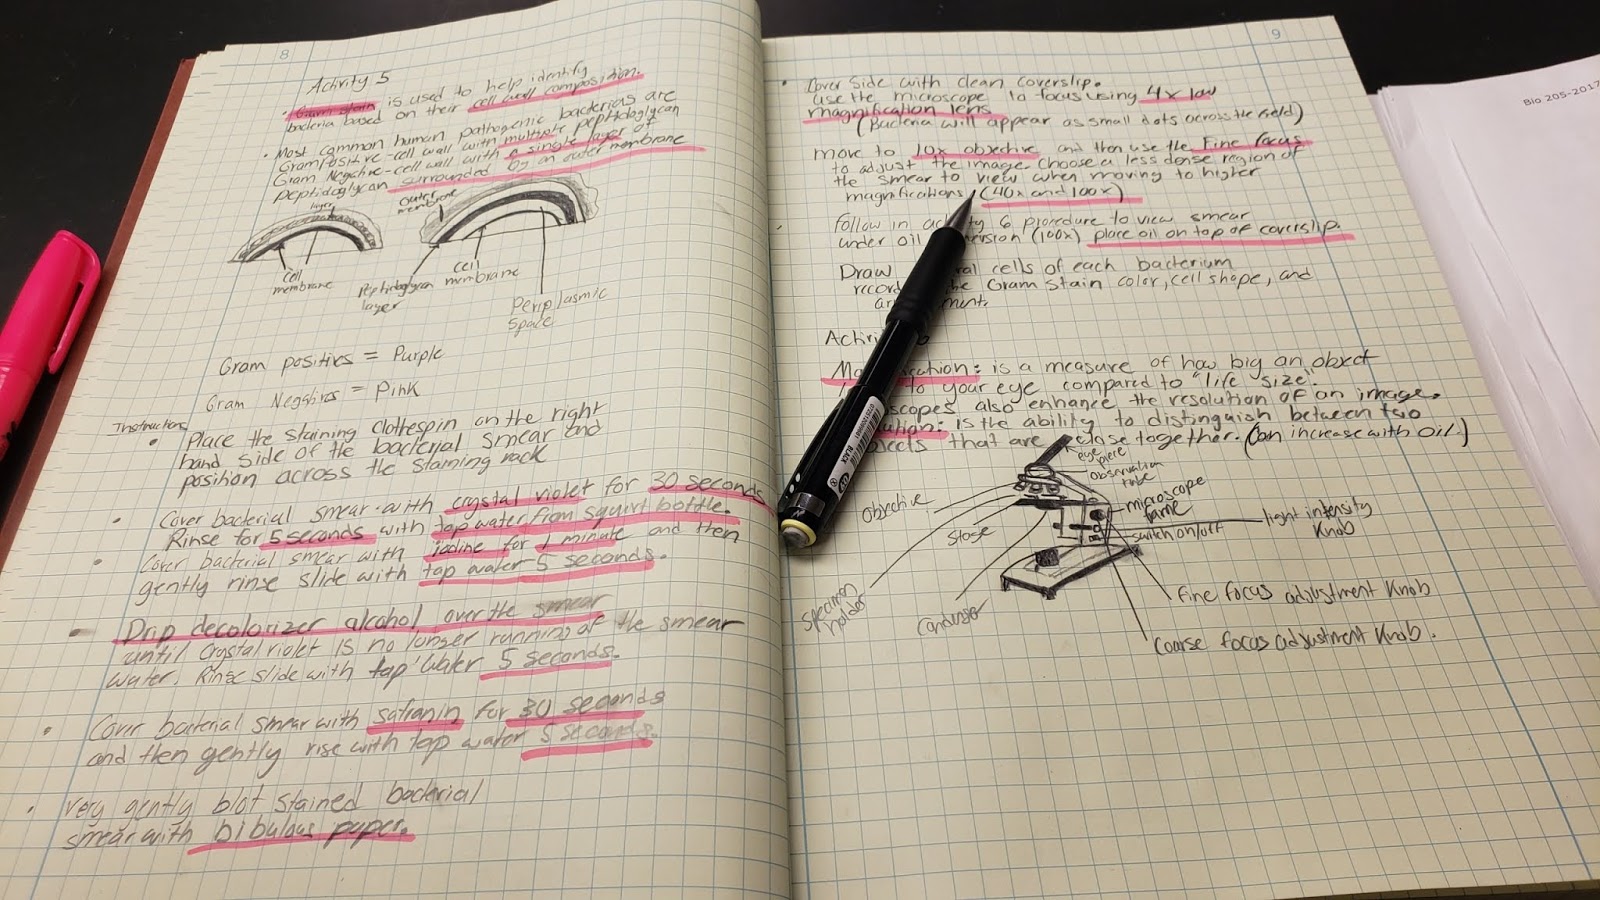 8
Activity 5
• Gram stain is used to help identify
bacteria based on their cell wall composition.
• Most common human pathogenic bacterias are
Gram Positive-cell wall with multiple peptidoglycan
Gram Negative-cell wall with a single layer of
peptidoglycan surrounded by an outer membrane
layer
outer
membrane
cell
membrane
Peptidoglycan
layer
cell
membrane
Periplasmic
Space
Gram positives = Purple
Gram Negatives = Pink
Instructions
• Place the staining clothespin on the right
hand side of the bacterial smear and
position across the staining rack
• Cover bacterial smear with crystal violet for 30 seconds
Rinse for 5 seconds with tap water from squirt bottle.
• Cover bacterial smear with iodine for 1 minute and then
gently rinse slide with tap water 5 seconds.
- Drip decolorizer alcohol over the smear
until crystal violet is no longer running of the smear
water. Rinse slide with tap water 5 seconds.
• Cover bacterial smear with safranin for 30 seconds
and then gently rise with tap water 5 seconds.
• Very gently blot stained bacterial
smear with bibulous paper.
9
• Cover Side with clean coverslip.
use the microscope to focus using 4x low
magnification lens
(Bacteria will appear as small dots across the field)
move to 10x objective and then use the Fine focus
to adjust the image. Choose a less dense region of
the smear to view when moving to higher
magnifications (40x and 100x)
Follow in 6 procedure to view smear
under oil (100x) place oil on top of coverslip.
Draw cells of each bacterium
Gram Stain color, cell shape, and
Magnification: is a measure of how big an object
to your eye compared to "life size".
scopes also enhance the resolution of an image.
is the ability to distinguish between two
that are close together. (Can increase with oil)
eye
piece
observation
tube
Objective
microscope
frame
Stage
light intensity
Knob
switch on/off
Specimen
holder
Condenser
Fine focus adjustment Knob
Coarse focus adjustment Knob.
BLACK
Bio 205-2017